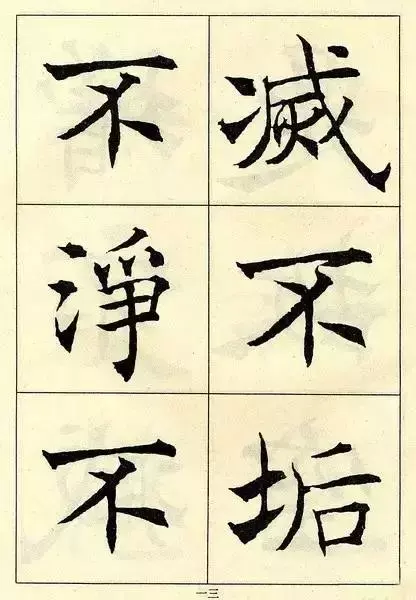 滅不垢
不淨不
一三